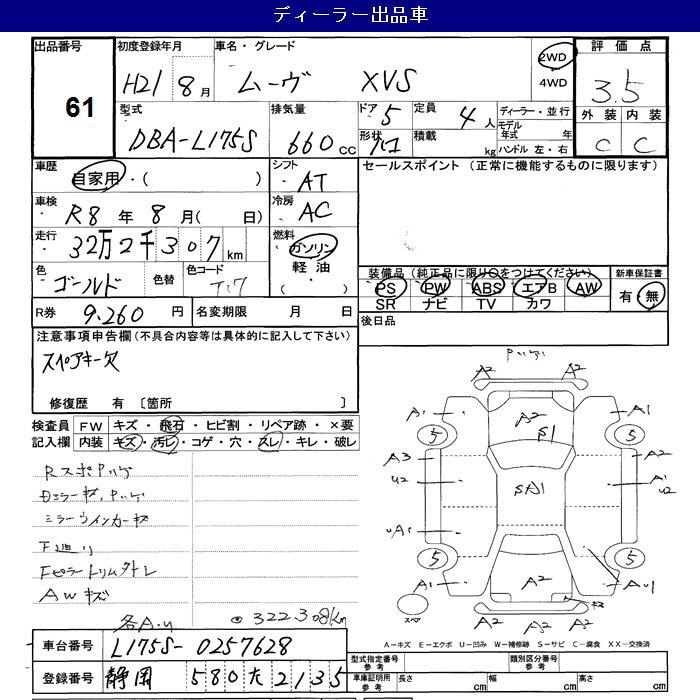 ディーラー出品車
出品番号 61
初度登録年月 H21 8月
車名・グレード ムーヴ XVS
2WD
4WD
評価点 3.5
型式 DBA-L175S
排気量 660cc
ドア 5
形状 ハコ
定員 4人
積載 kg
ディーラー・並行
モデル年式 年
ハンドル 左・右
外装 C
内装 C
車歴 自家用・( )
シフト AT
セールスポイント (正常に機能するものに限ります)
車検 R8年 8月( 日)
冷房 AC
走行 32万2千307km
燃料 ガソリン
軽油
( )
色 ゴールド
色替
色コード T17
装備品(純正品に限り○をつけてください)
新車保証書
PS PW ABS エアB AW
有・無
SR ナビ TV カワ
R券 9.260円
名変期限 月 日
後日品
注意事項申告欄(不具合内容等は具体的に記入して下さい)
スペアキー欠
修復歴 有 〔箇所 〕
検査員記入欄
FW キズ・飛石・ヒビ割・リペア跡・×要
内装 キズ・汚レ・コゲ・穴・スレ・キレ・破レ
ミラーウインカーキズ
F廻り
Fピラートリム外レ
AWキズ
各A.u
322308km
A2 A2
A1 A2 A1
5 S1 5
A3 A2
U2 SA1 A1
U2
UA1
5 5
A1 A2 AU1
スペア
A2 A3 A2
A-キズ E-エクボ U-凹み W-補修跡 S-サビ C-腐食 XX-交換済
車台番号 L175S-0257628
型式指定番号 参考
類別区分番号 参考
登録番号 静岡 580 た 2135
車庫証明用 参考
長さ cm
幅 cm
高さ cm